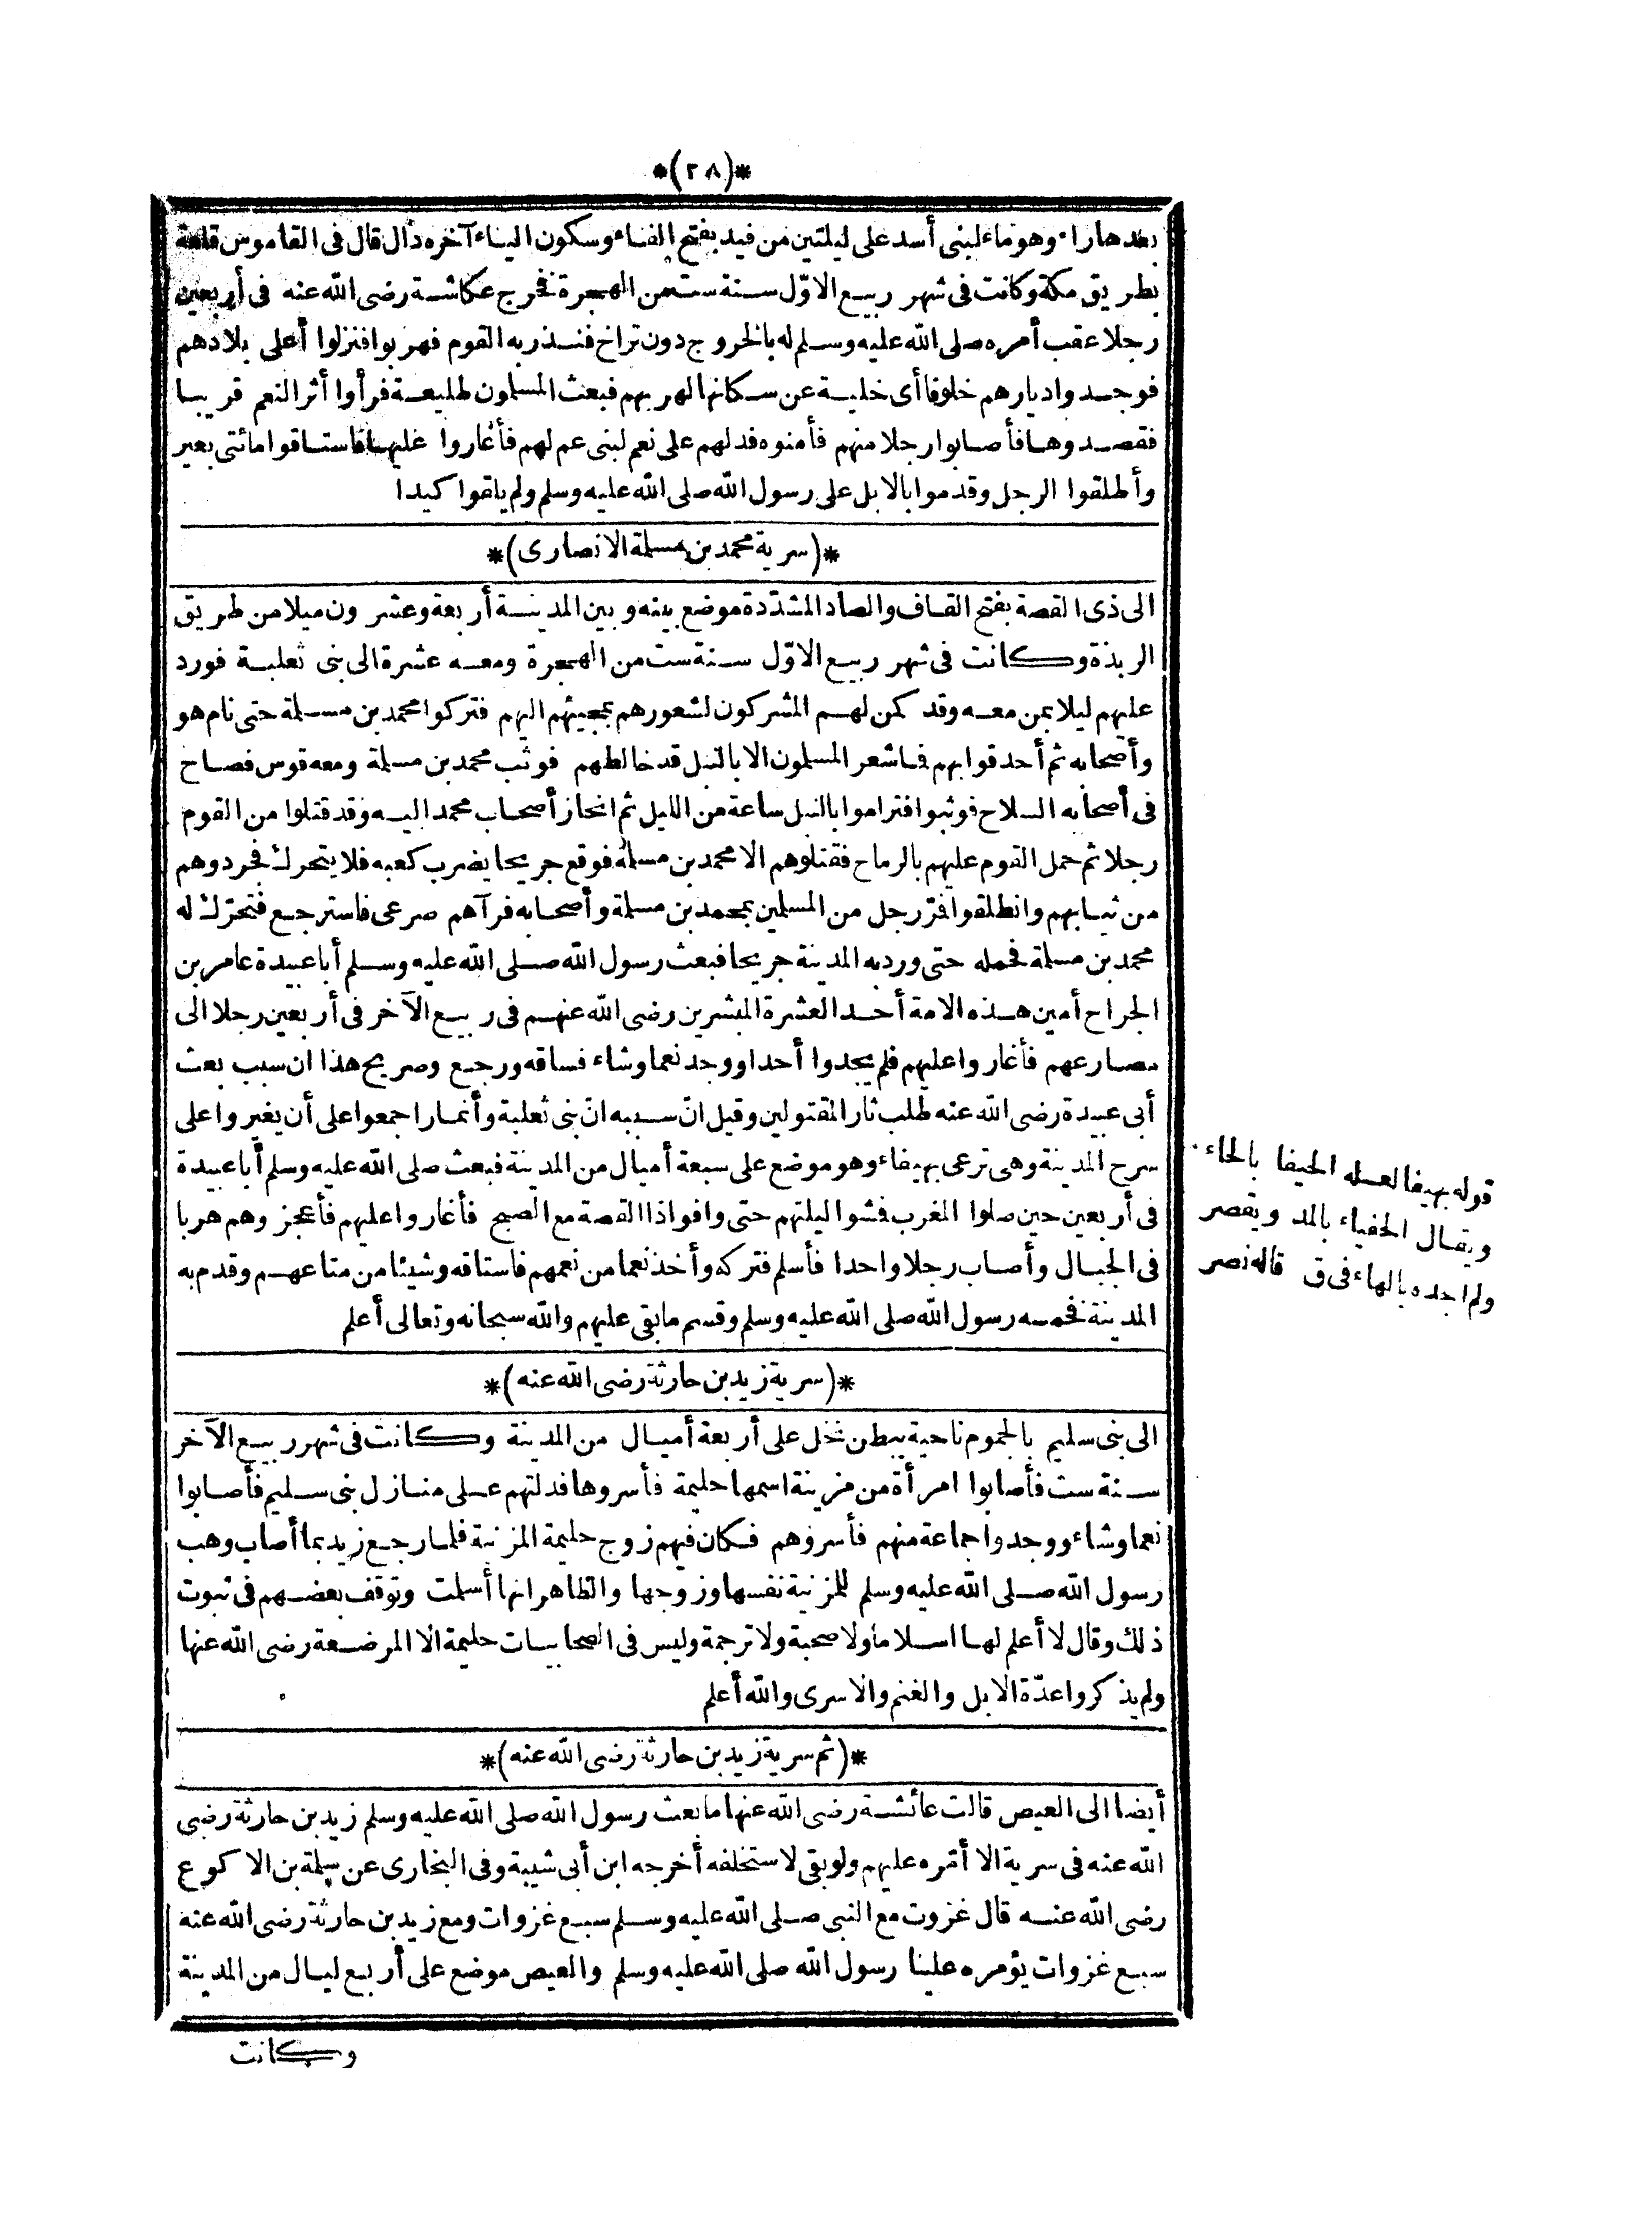 *(٢٨)*
بعدها راء وهو ماء لبنى أسد على ليلتين من فيد بفتح الفاء وسكون الياء آخره دال قال فى القاموس قلعة
بطريق مكة وكانت فى شهر ربيع الاوّل سنة ست من الهجرة نخرج عكاشة رضى الله عنه فى أربعين
رجلا عقب أمره صلى الله عليه وسلم له بالخروج دون تراخ فنذر به القوم فهربوا فنزلوا أعلى بلادهم
فوجدوا ديارهم خلوفا أى خلية عن سكانها لهربهم فبعث المسلمون طليعة فرأوا أثر النعم قريبا
فقصدوها فأصابوا رجلا منهم فأمنوه فدلهم على نعم لبنى عم لهم فأغاروا عليها فاستاقوا مائتى بعير
وأطلقوا الرجل وقدموا بالابل على رسول الله صلى الله عليه وسلم ولم يلقوا كيدا
*(سرية محمد بن مسلمة الانصارى)*
الى ذى القصة بفتح القاف والصاد المشدّدة موضع بينه وبين المدينة أربعة وعشرون ميلا من طريق
الربذة وكانت فى شهر ربيع الاوّل سنة ست من الهجرة ومعه عشرة الى بنى ثعلبة فورد
عليهم ليلا بمن معه وقد كمن لهم المشركون لشعورهم بمجيئهم اليهم فتركوا محمد بن مسلمة حتى نام هو
وأصحابه ثم أحدقوا بهم فاشعر المسلمون الا بالنبل قد خالطهم فوثب محمد بن مسلمة ومعه قوس فصاح
فى أصحابه السلاح فوثبوا فتراموا بالنبل ساعة من الليل ثم انحاز أصحاب محمد اليه وقد قتلوا من القوم
رجلا ثم حمل القوم عليهم بالرماح فقتلوهم الا محمد بن مسلمة فوقع جريحا يضرب كعبه فلا يتحرك فجردوهم
من ثيابهم وانطلقوا فمرّ رجل من المسلمين بمحمد بن مسلمة وأصحابه فرآهم صرعى فاسترجع فتحرّك له
محمد بن مسلمة فحمله حتى ورد به المدينة جريحا فبعث رسول الله صلى الله عليه وسلم أبا عبيدة عامر بن
الجراح أمين هذه الامة أحد العشرة المبشرين رضى الله عنهم فى ربيع الآخر فى أربعين رجلا الى
مصارعهم فأغاروا عليهم فلم يجدوا أحدا ووجد نعما وشاء فساقه ورجع وصريح هذا ان سبب بعث
أبى عبيدة رضى الله عنه طلب ثار المقتولين وقيل انّ سببه انّ بنى ثعلبة وأنمارا جمعوا على أن يغيروا على
سرح المدينة وهى ترعى بهيفاء وهو موضع على سبعة أميال من المدينة فبعث صلى الله عليه وسلم أبا عبيدة
فى أربعين حين صلوا المغرب فمشوا ليلتهم حتى وافوا ذا القصة مع الصبح فأغاروا عليهم فأعجزوهم هربا
فى الجبال وأصاب رجلا واحدا فأسلم فتركه وأخذ نعما من نعمهم فاستاقه وشيئا من متاعهم وقدم به
المدينة فخمسه رسول الله صلى الله عليه وسلم وقسم ما بقى عليهم والله سبحانه وتعالى أعلم
قوله بهيفا لعله الحيفا بالحاء
ويقال الحفياء بالمد ويقصر
ولم اجده بالهاء فى ق قاله نصر
*(سرية زيد بن حارثة رضى الله عنه)*
الى بنى سليم بالجموم ناحية ببطن نخل على أربعة أميال من المدينة وكانت فى شهر ربيع الآخر
سنة ست فأصابوا امرأة من مزينة اسمها حليمة فأسروها فدلتهم على منازل بنى سليم فأصابوا
نعما وشاء ووجدوا جماعة منهم فأسروهم فكان فيهم زوج حليمة المزنية فلما رجع زيد بما أصاب وهب
رسول الله صلى الله عليه وسلم للمزنية نفسها وزوجها والظاهر انها أسلمت وتوقف بعضهم فى ثبوت
ذلك وقال لا أعلم لها اسلاما ولا صحبة ولا ترجمة وليس فى الصحابيات حليمة الا المرضعة رضى الله عنها
ولم يذكروا عدّة الابل والغنم والاسرى والله أعلم
*(ثم سرية زيد بن حارثة رضى الله عنه)*
أيضا الى العيص قالت عائشة رضى الله عنها ما بعث رسول الله صلى الله عليه وسلم زيد بن حارثة رضى
الله عنه فى سرية الا أمّره عليهم ولو بقى لاستخلفه أخرجه ابن أبى شيبة وفى البخارى عن سلمة بن الاكوع
رضى الله عنه قال غزوت مع النبى صلى الله عليه وسلم سبع غزوات ومع زيد بن حارثة رضى الله عنه
سبع غزوات يؤمره علينا رسول الله صلى الله عليه وسلم والعيص موضع على أربع ليال من المدينة
وكانت